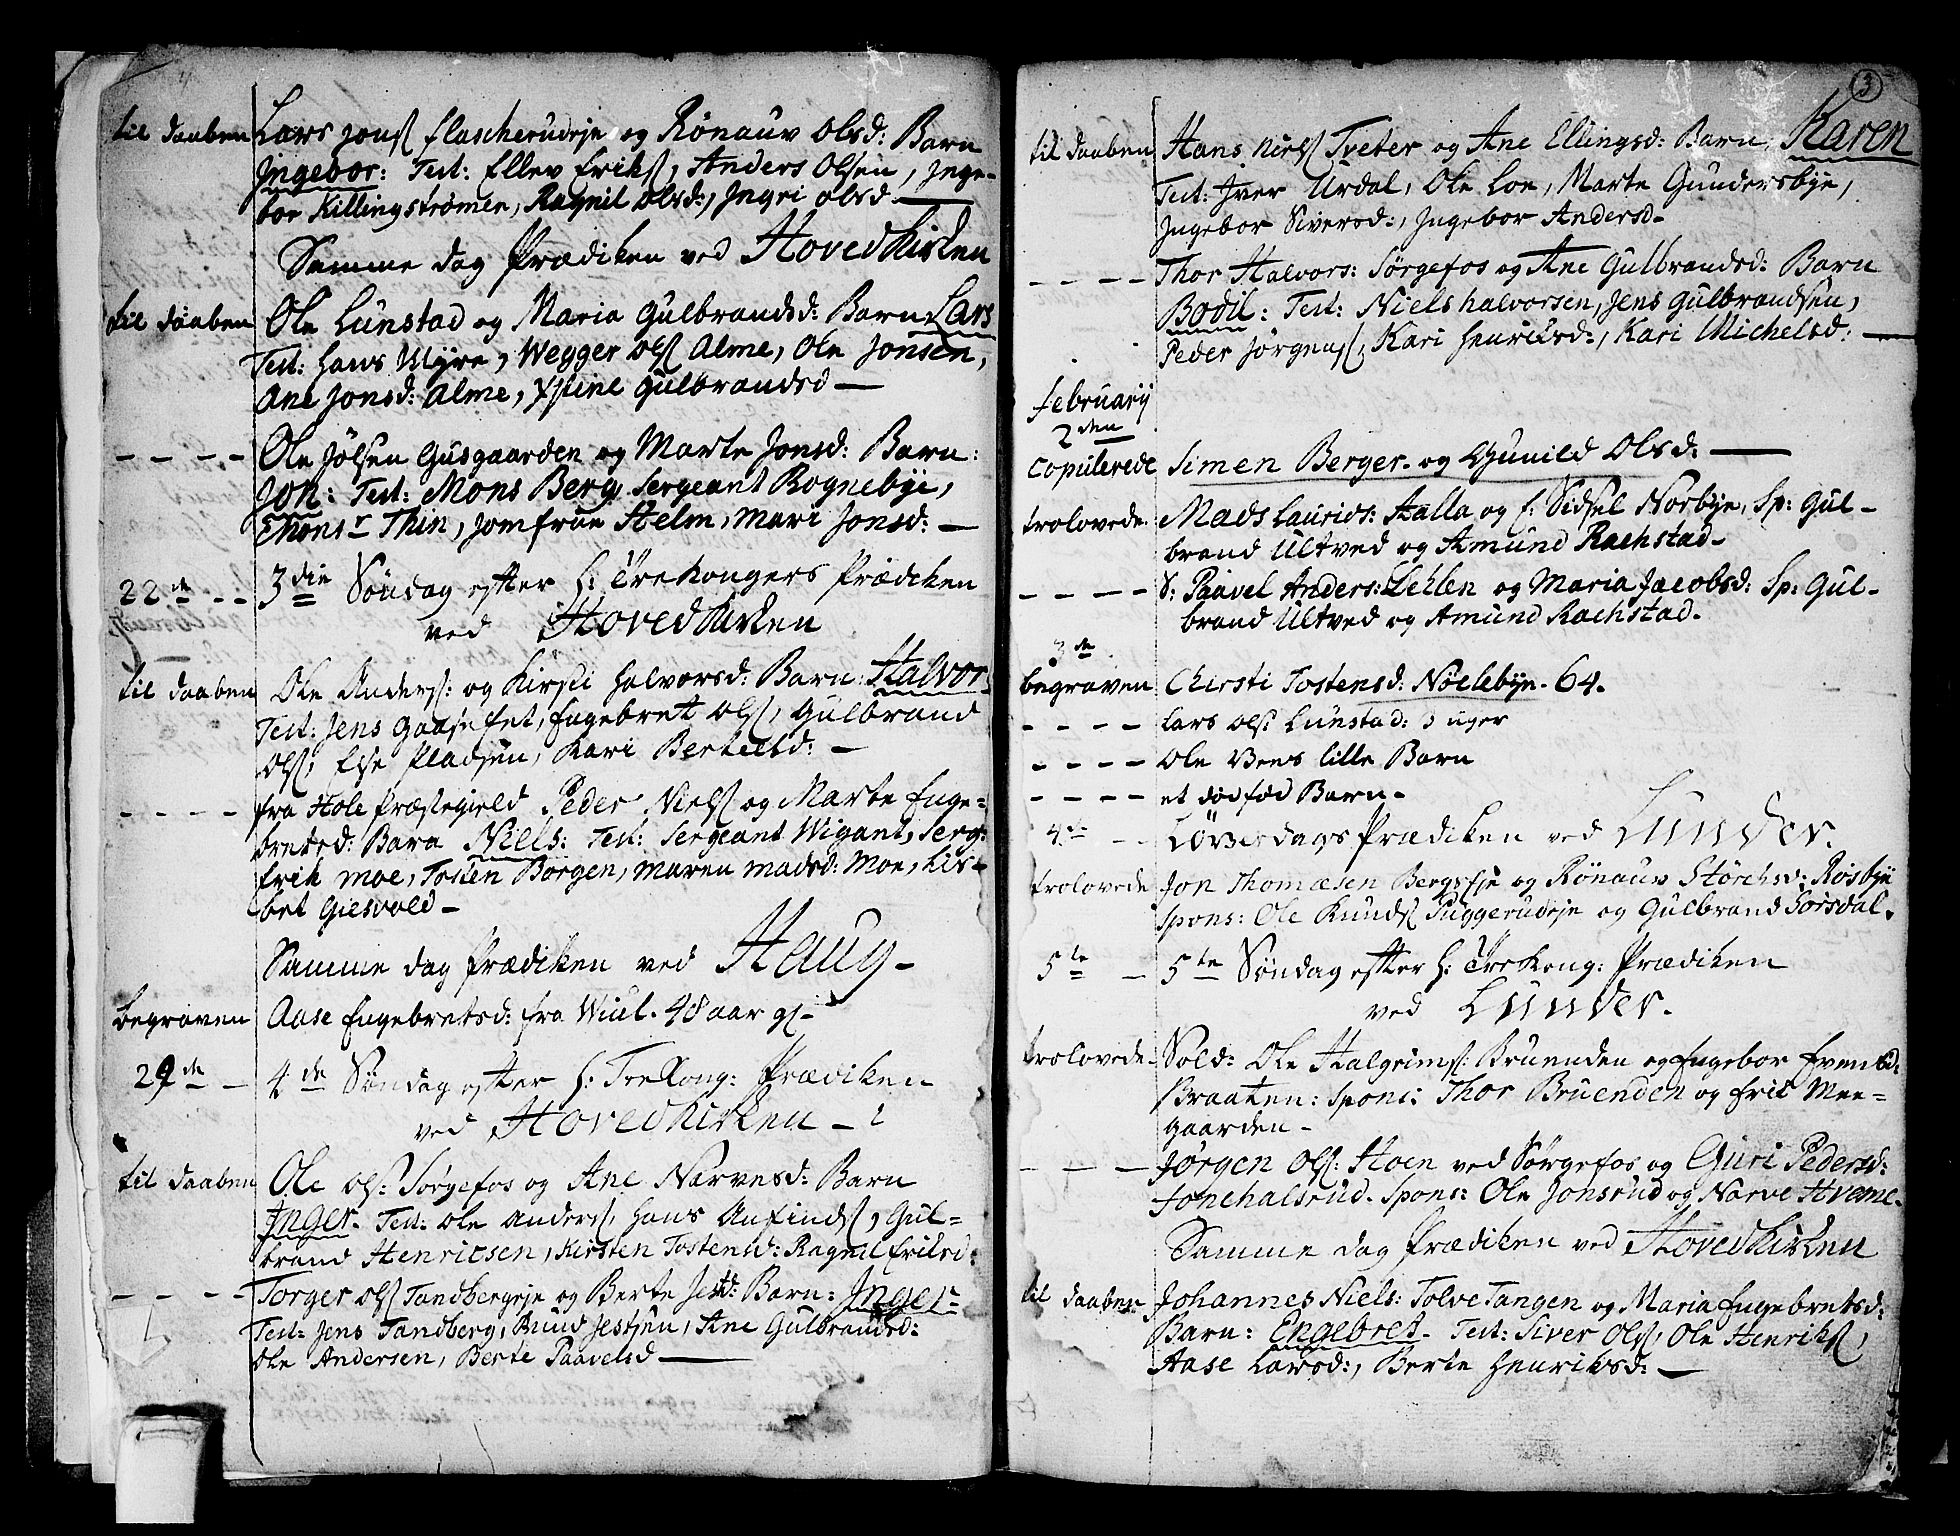 til daaben Lars Jons: Flascherudeje og Rönauv Olsd: Barn
Ingebor: Test: Ellev Eriks:, Anders Olsen, Inge-
bor Killingströmen, Ragnil Olsd:, Ingri Olsd —
Samme dag Prædiken ved Hovedkirken
til daaben Ole Lunstad og Maria Gulbrandsd: Barn Lars
Test: Hans Myre, Wegger Ols: Alme, Ole Jonsen,
Ane Jonsd: Alme, Xstine Gulbrandsd —
- - - - Ole Jölsen Gusgaarden og Marte Jonsd: Barn:
Jon: Test: Mons Berg Sergeant Rognebye,
Thin, Jomfrue Helm, Mari Jonsd: —
22de - - 3die Söndag efter H: Tre Kongers Prædiken
ved Hovedkirken
til daaben Ole Anders: og Kirsti Halvorsd: Barn: Halvor.
Test: Jens Gaasefet, Engebret Ols:, Gulbrand
Ols: Else Pladsen, Kari Bertelsd: —
- - - - fra Hole Præstegield Peder Niels: og Marte Enge-
bretsd: Barn Niels: Test: Sergeant Wigant, Serg:
Erik Moe, Tosten Borgen, Maren Madsd: Moe, Lis-
bet Gilsvold -
Samme dag Prædiken ved Haug -
begraven Aase Engebretsd: fra Wiul. 48 aar gl -
29de - 4de Söndag efter H: Tre Kong: Prædiken
ved Hovedkirken -
til daaben Ole Ols: Sörgefos og Ane Narvesd: Barn
Inger. Test: Ole Anders:, Hans Anfinds:, Gul-
brand Henricsen, Kirsten Tostensd: Ragnil Eriksd:
- - - - Torger Ols: Tandbergeje og Berte Jestd: Barn: Inger
Test: Jens Tandberg, Knud Jestsen, Ane Gulbrandsd:
Ole Andersen, Berte Paavelsd —
3
til daaben Hans Niels: Tveter og Ane Ellingsd: Barn, Karen
Test: Iver Urdal, Ole Loe, Marte Gundersbye,
Ingebor Siversd:, Ingebor Andersd-
- - - - Thor Halvors: Sörgefos og Ane Gulbrandsd: Barn
Bodil: Test: Niels Halvorsen, Jens Gulbrandsen,
Peder Jörgens:, Kari Henriksd:, Kari Michelsd: —
Februarij
2den
Copulerede Simen Berger. og Gunild Olsd: —
trolovede Mads Laurids: Halla og E: Sidsel Norbye, Sp: Gul-
brand Ultved og Amund Rachstad-
- - - - S: Paavel Anders: Lehlen og Maria Jacobsd: Sp: Gul-
brand Ultved og Amund Rachstad.
3de
begraven Chersti Tostensd: Nöclebye. 64.
- - - - Lars Ols: Lunstad: 3 uger
- - - - Ole Veens lille Barn
- - - - et dödföd Barn-
4te - - Löverdags Prædiken ved Lunder.
trolovede Jon Thomæsen Bergseje og Rönauv Störchsd: Rösbye
Spons: Ole Knuds: Tuggerudeje og Gulbrand Sorsdal.
5te - 5te Söndag efter H: Tre Kong: Prædiken
ved Lunder.
trolovede Sold: Ole Halgrims: Bruenden og Engebor Evensd:
Braaten: Spons: Thor Bruenden og Eric Mee-
gaarden -
- - - Jörgen Ols: Hoen ved Sörgefos og Guri Pedersd:
Jonehalsrud. Spons: Ole Jonsrud og Narve Hveme.
Samme dag Prædiken ved Hovedkirken
til daaben Johannes Niels: Tolvetangen og Maria Engebretsd:
Barn: Engebret. Test: Siver Ols:, Ole Henriks:,
Aase Larsd:, Berte Henriksd: —